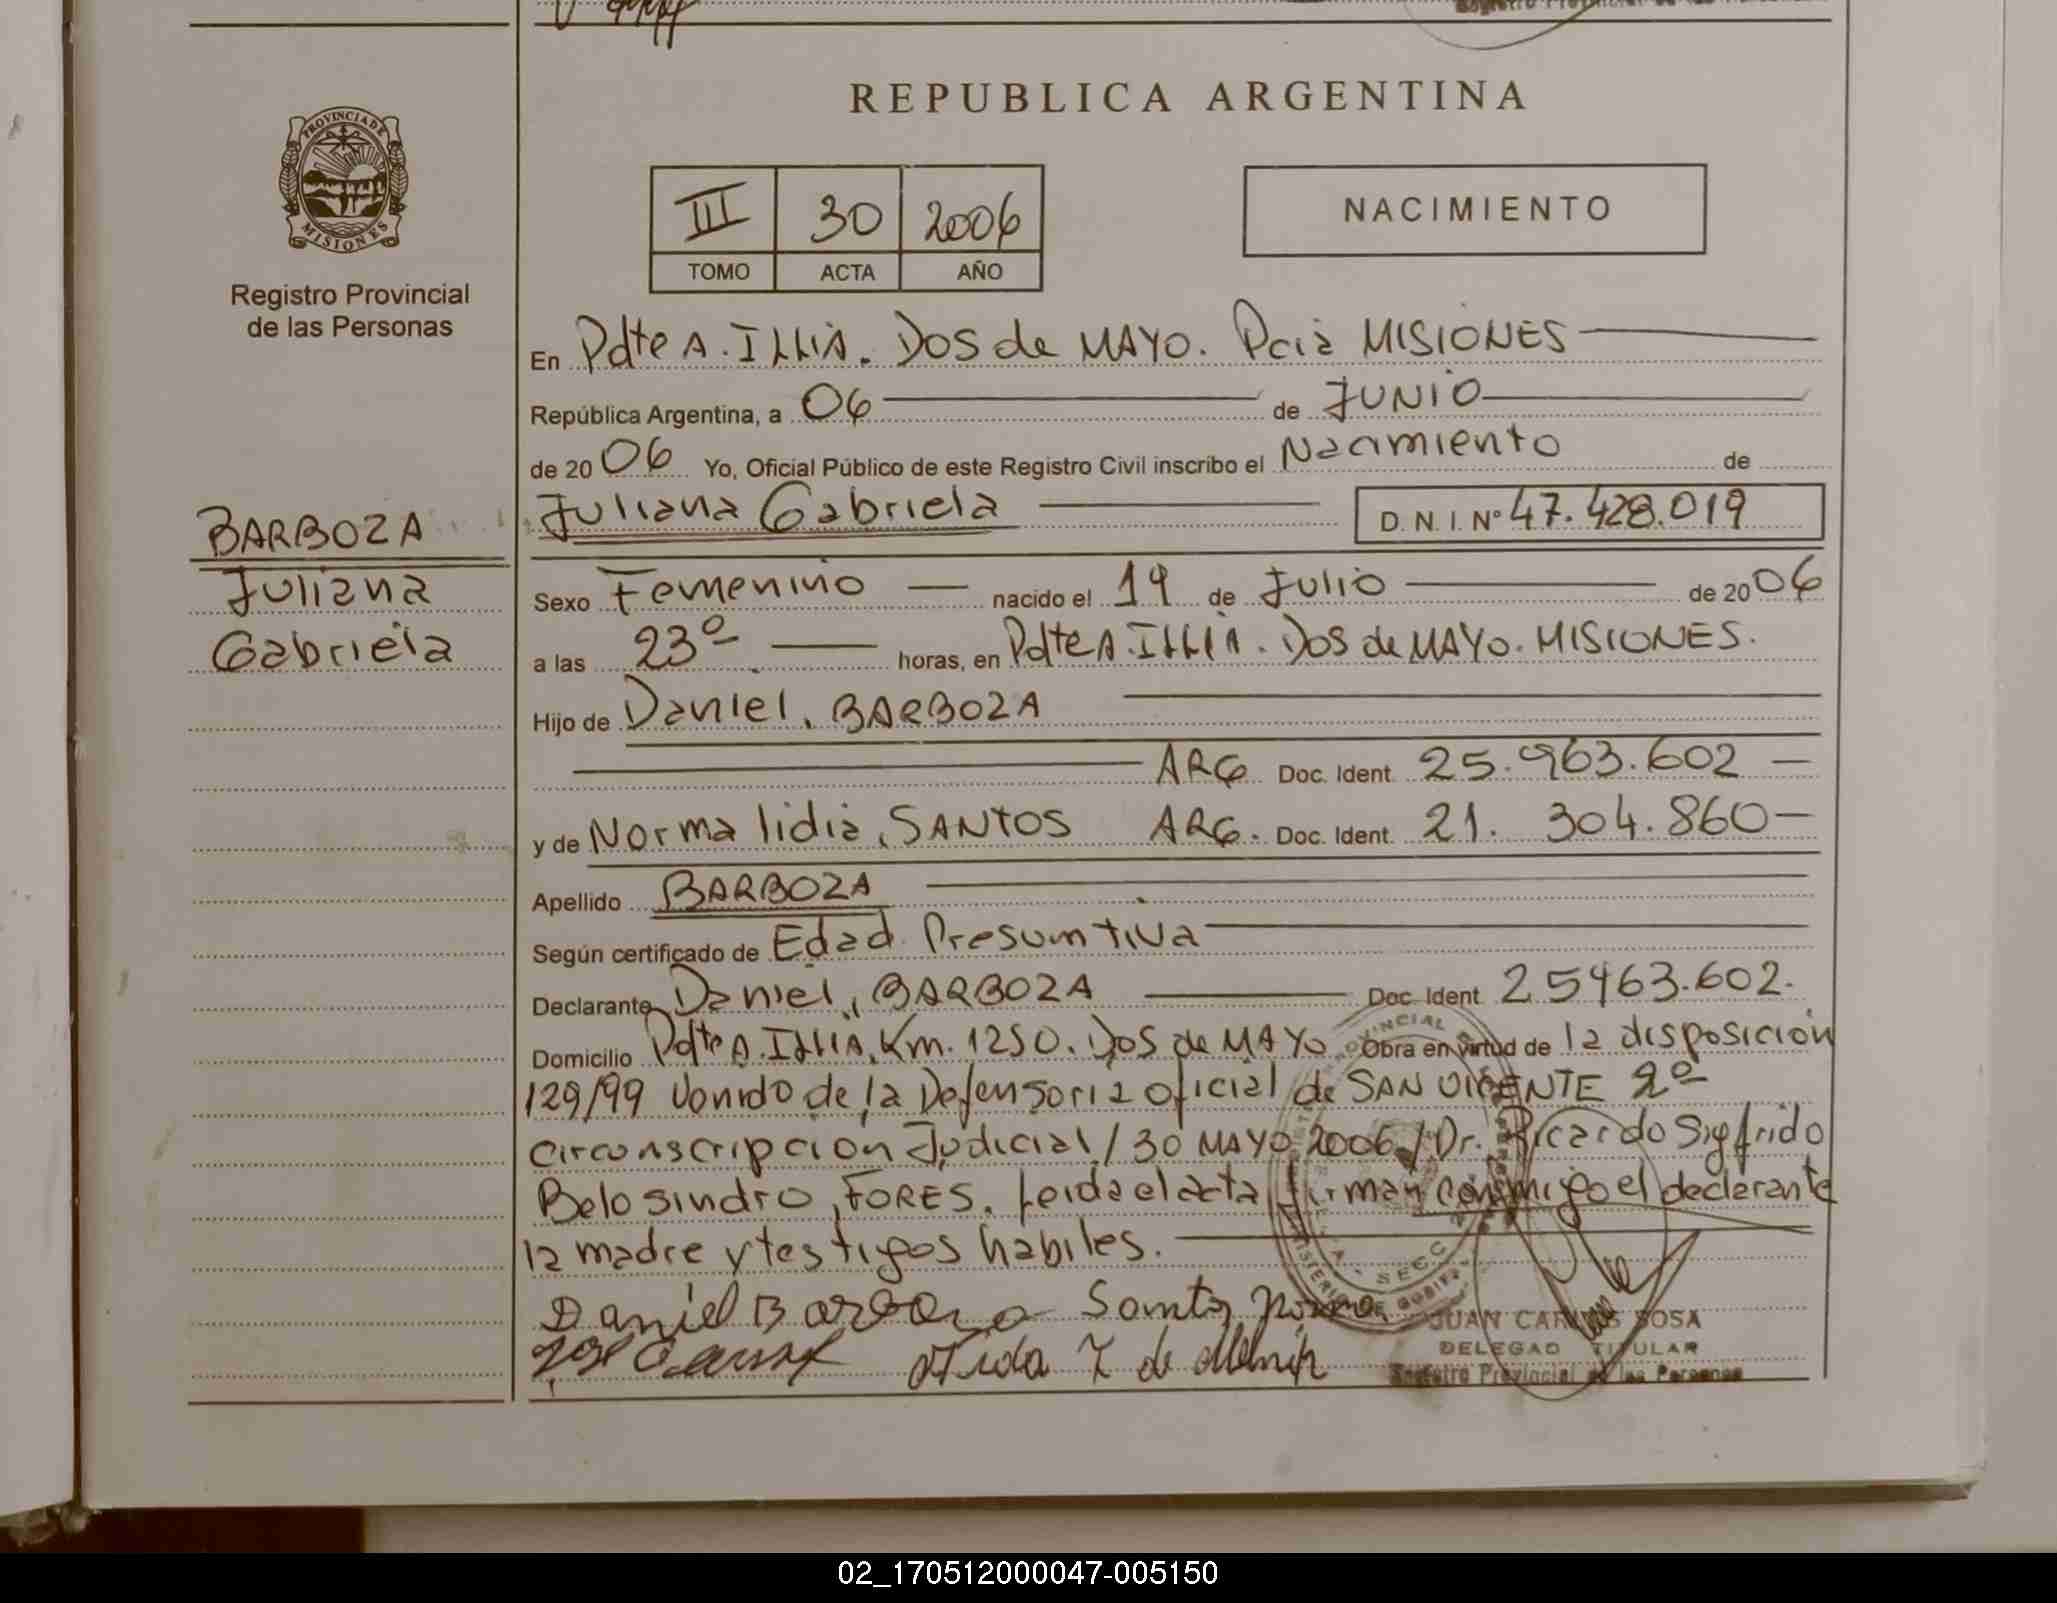 REPUBLICA ARGENTINA
PROVINCIA DE MISIONES
Registro Provincial
de las Personas
III 30 2006
TOMO ACTA AÑO
NACIMIENTO
En Pdte A. ILLIA. DOS de MAYO. Pcia MISIONES
República Argentina, a 06 de JUNIO
de 20 06 Yo, Oficial Público de este Registro Civil inscribo el Nacimiento de
Juliana Gabriela D. N. I. Nº 47.428.019
BARBOZA
Juliana
Gabriela
Sexo Femenino nacido el 19 de Julio de 20 06
a las 23º horas, en Pdte A. ILLIA. DOS de MAYO. MISIONES.
Hijo de Daniel, BARBOZA
ARG Doc. Ident. 25.963.602
y de Norma lidia, SANTOS ARG. Doc. Ident. 21. 304.860
Apellido BARBOZA
Según certificado de Edad Presumtiva
Declarante Daniel, BARBOZA Doc. Ident. 25963.602.
Domicilio Pdte A. ILLIA. Km. 1250. DOS de MAYO Obra en virtud de la disposición
129/99 Venido de la Defensoria oficial de SAN VICENTE 2º
circonscripción Judicial / 30 MAYO 2006 / Dr. Ricardo Sigfrido
Belosindro, FORES. Leida el acta firman conmigo el declarante
la madre y testigos habiles.
Daniel Barboza Santos Norma
de
JUAN CARLOS SOSA
DELEGADO TITULAR
Registro Provincial de las Personas
02_170512000047-005150